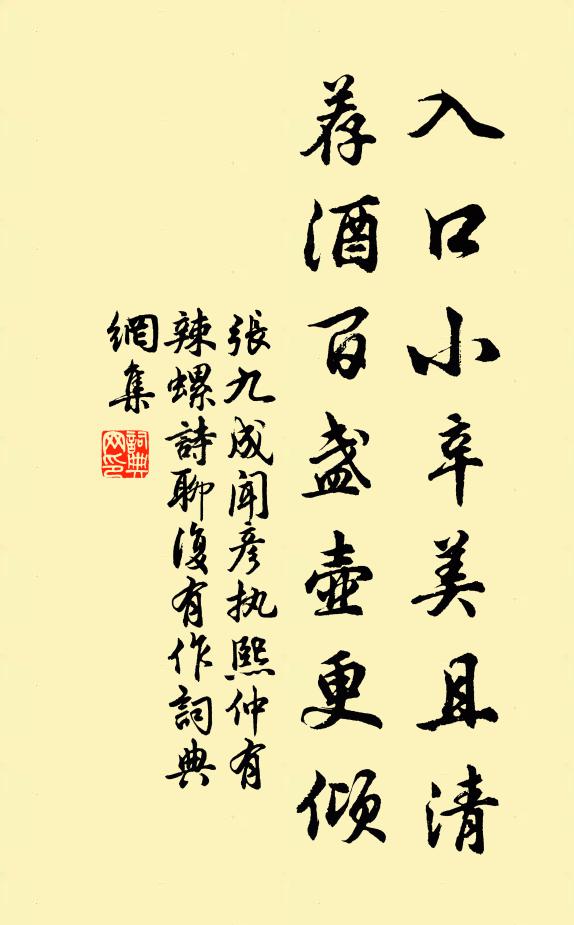 入口小辛美且清
荐酒百盏壶更倾
張九成闻彦执熙仲有
辣螺詩聊復有作詞典
網集
詞典
网印